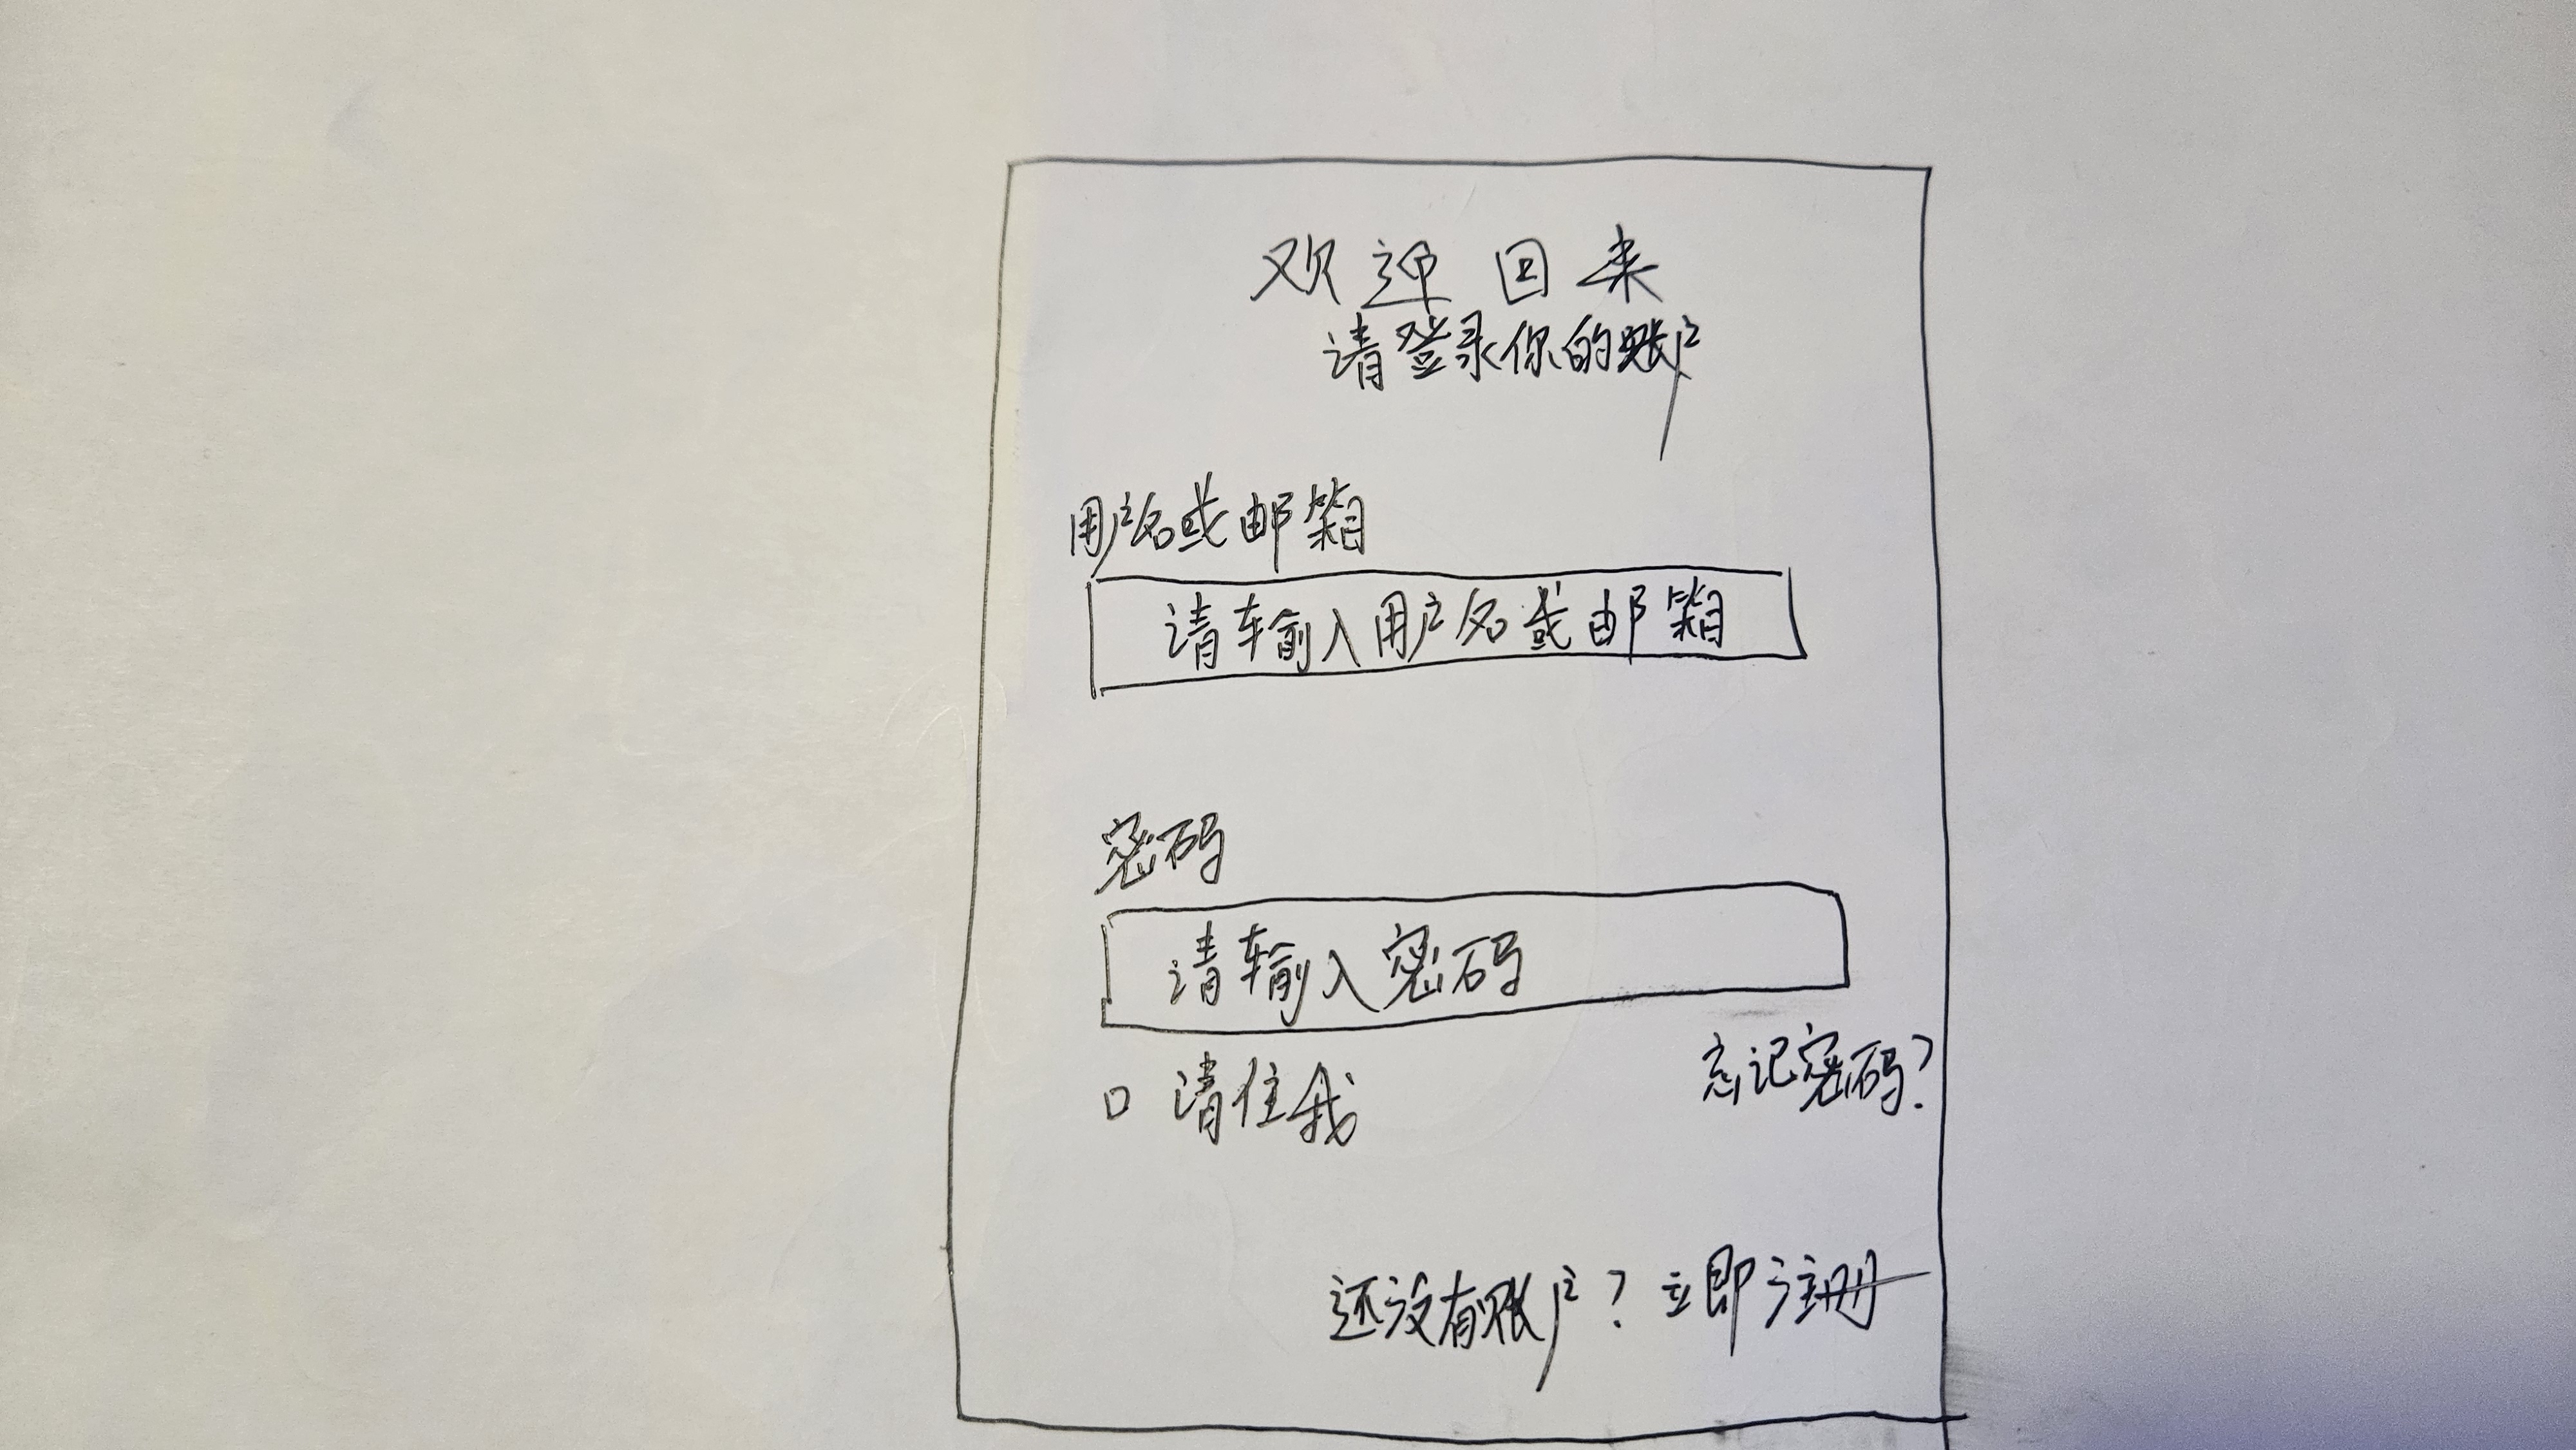 欢迎回来
请登录你的账户
用户名或邮箱
请输入用户名或邮箱
密码
请输入密码
请住我
忘记密码?
还没有账户? 立即注册